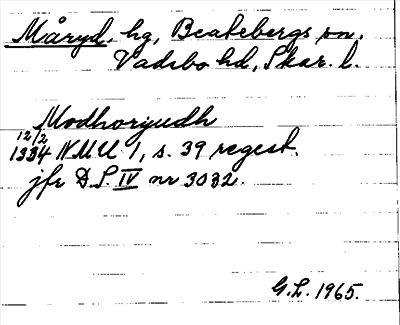 Måryd, hg, Beatebergs sn.
Vadsbo hd, Skar. l.
Modhorijudh
12/2
1334 NMU 1, s. 39 regest.
jfr D.S. IV nr 3032.
G.L. 1965.